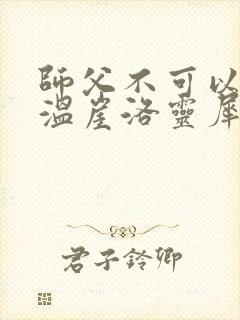 師父不可以
溫崖洛靈犀
君子鈴卿